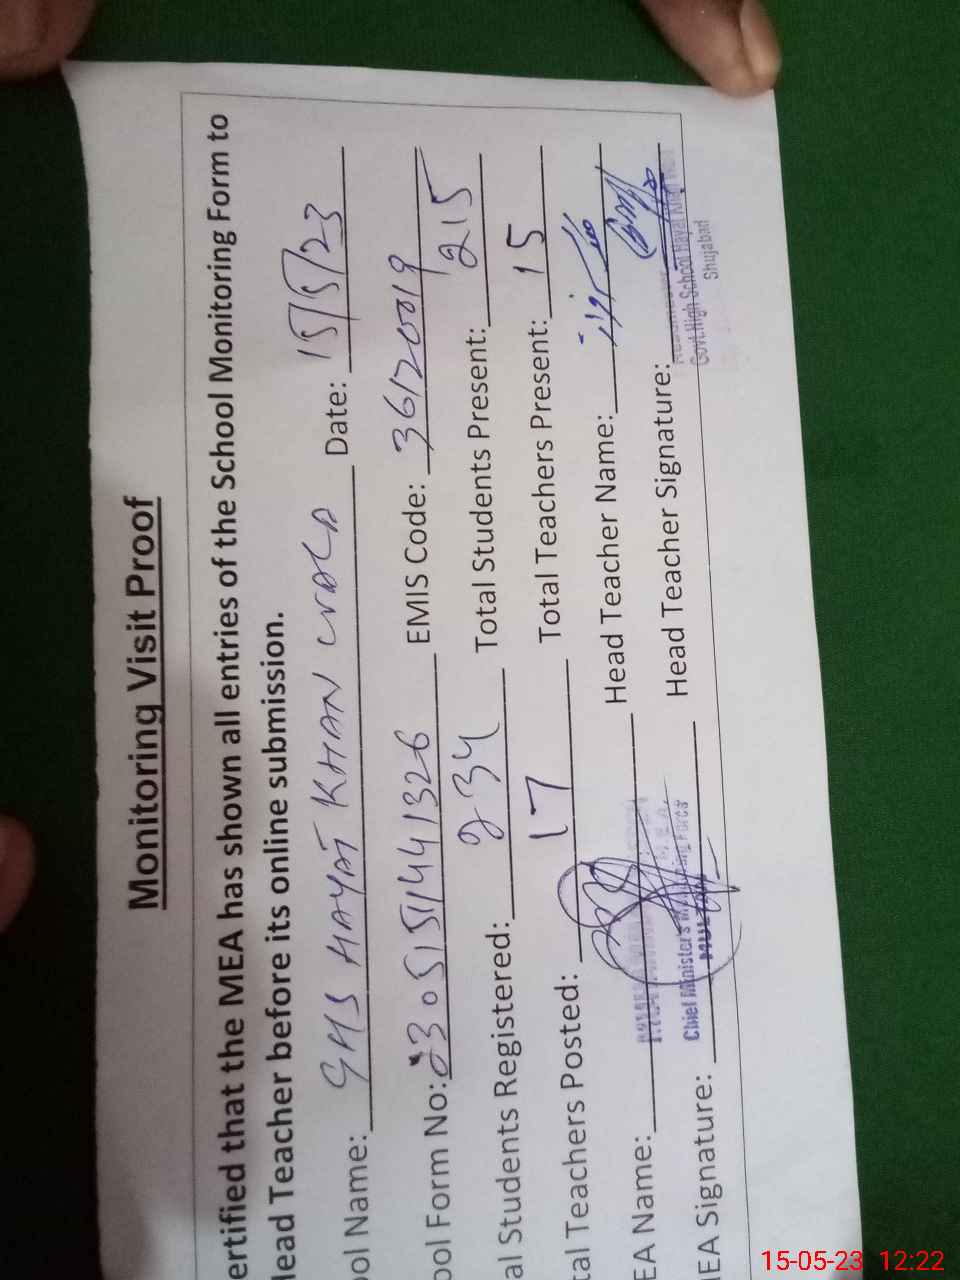 Monitoring Visit Proof
ertified that the MEA has shown all entries of the School Monitoring Form to
Head Teacher before its online submission.
ool Name: GHS HAYAT KHAN WALA Date: 15/5/23
ool Form No: 2305151441326 EMIS Code: 36120019
al Students Registered: 234 Total Students Present: 215
tal Teachers Posted: 17 Total Teachers Present: 15
EA Name: Head Teacher Name:
MEA Signature: Head Teacher Signature:
Chief Minister's Monitoring Force
MULTAN
Headmaster
Govt.High School Hayat Khan
Shujabad
15-05-23 12:22